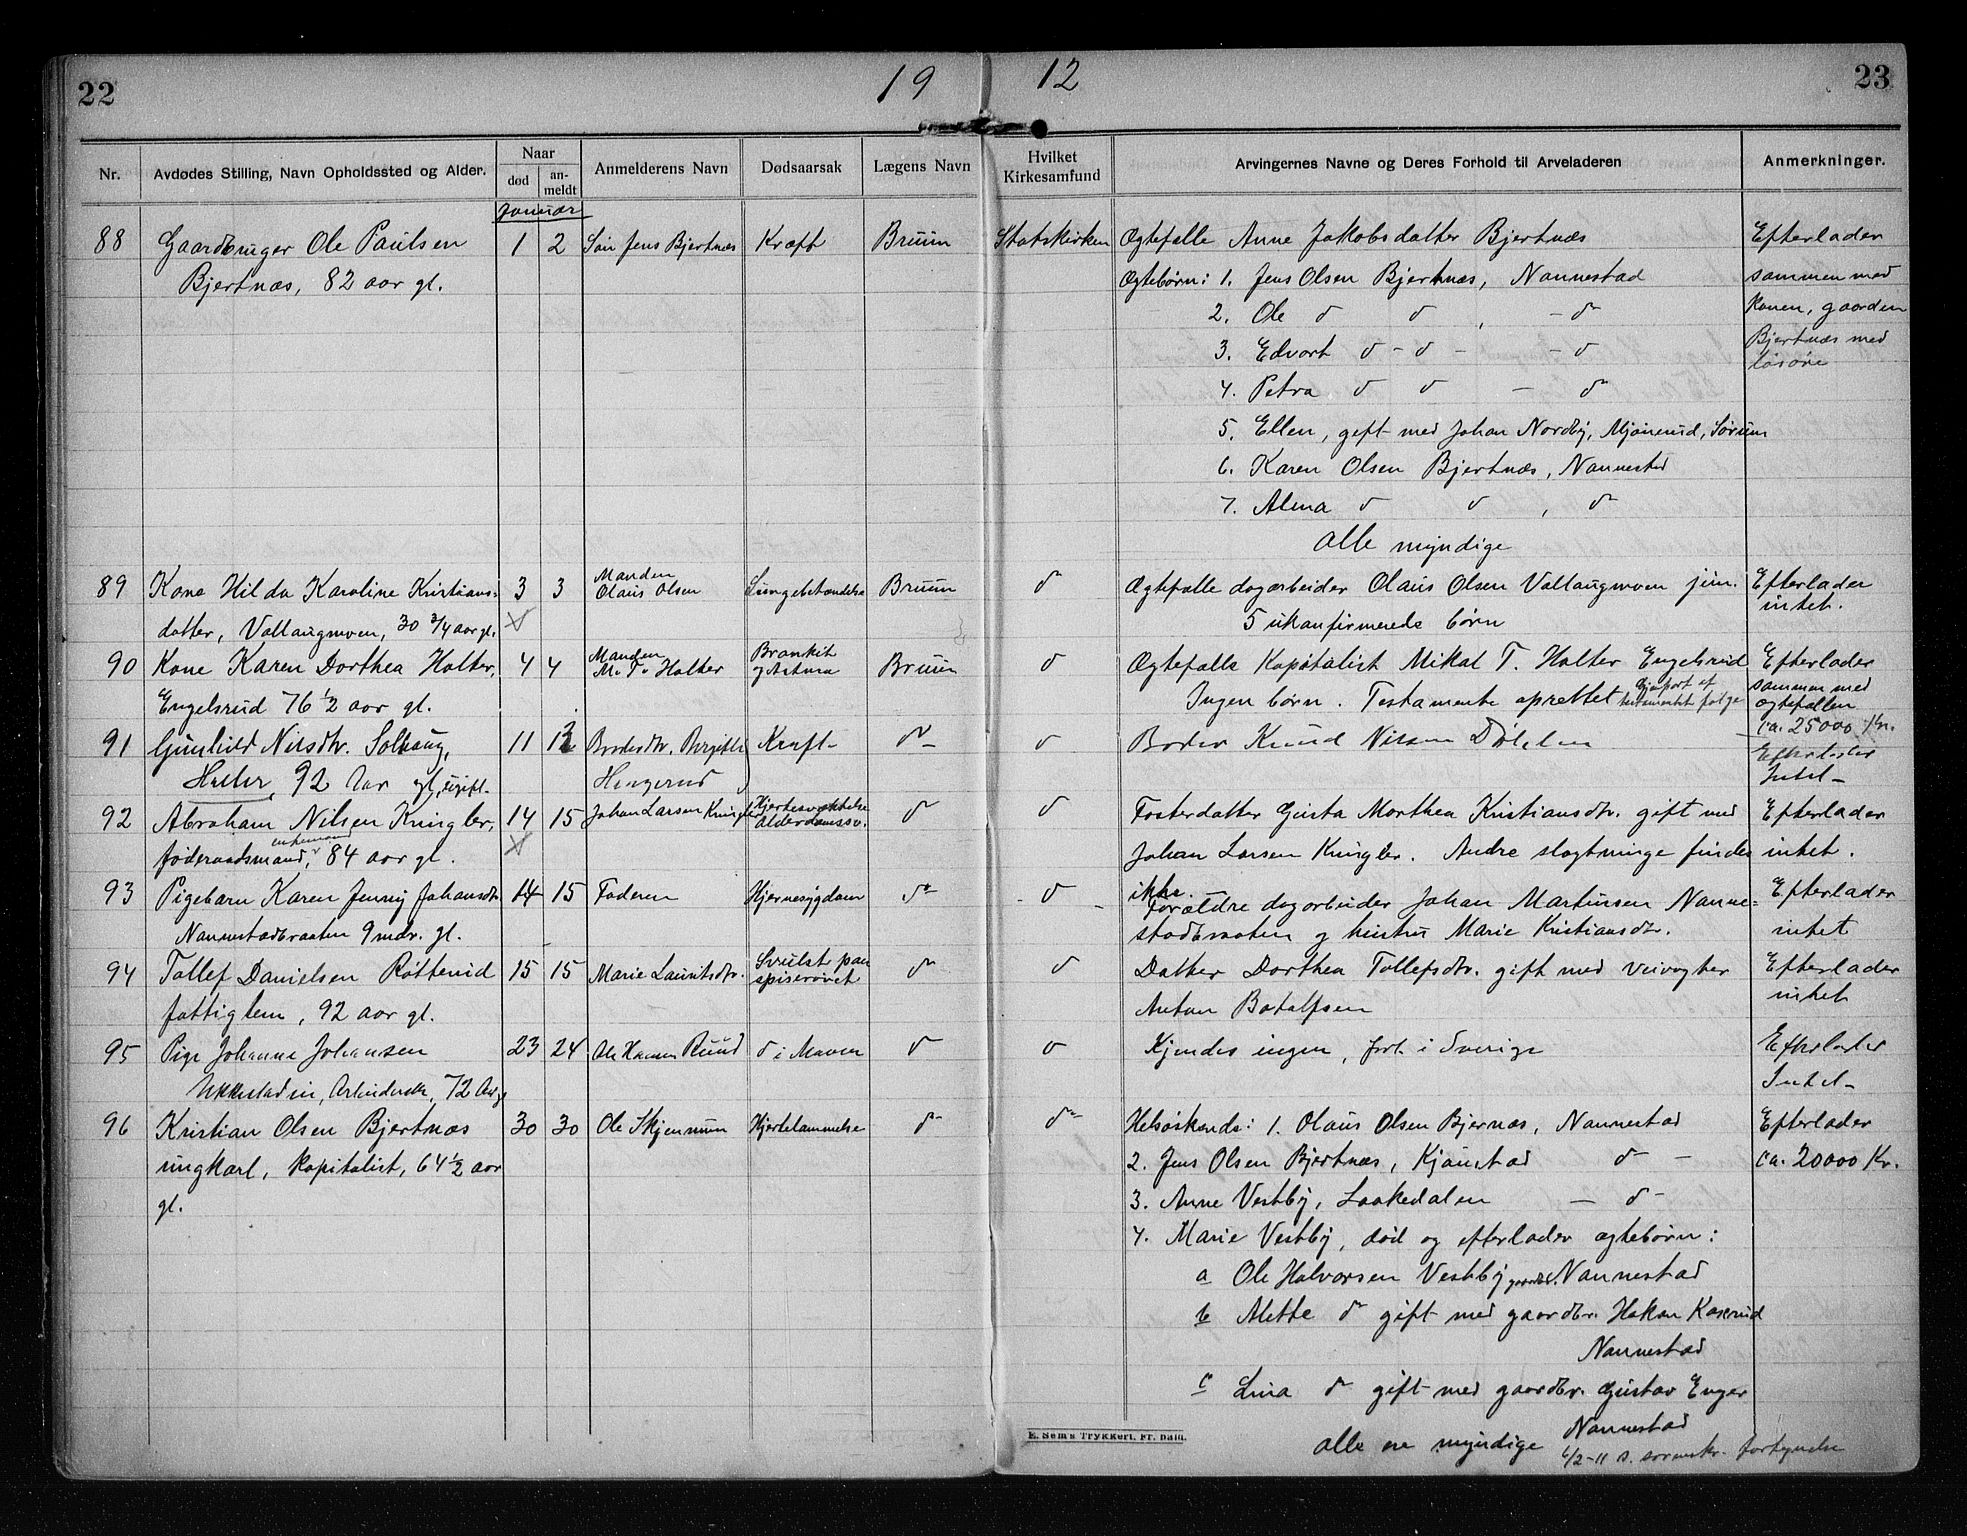 22
19 12
23
Nr.
Avdødes Stilling, Navn Opholdssted og Alder.
Naar
død
an-
meldt
Anmelderens Navn
Dødsaarsak
Lægens Navn
Hvilket
Kirkesamfund
Arvingernes Navne og Deres Forhold til Arveladeren
Anmerkninger.
Januar
88 Gaardbruger Ole Paulsen 1 2 Søn Jens Bjertnæs Kræft Bruun Statskirken Ægtefælle Anne Jakobsdatter Bjertnæs Efterlader
Bjertnæs, 82 aar gl. Ægtebørn: 1. Jens Olsen Bjertnæs, Nannestad sammen med
2. Ole do do , - do konen, gaarden
3. Edvart do - do - - do Bjertnæs med
4. Petra do do - do løsøre
5. Ellen, gift med Johan Nordby, Mjønerud, Sørum
6. Karen Olsen Bjertnæs, Nannestad
7. Alma do do , do
alle myndige
89 Kone Hilda Karoline Kristians- 3 3 Manden Olaus Olsen Lungebetændelse Bruun do Ægtefælle dagarbeider Olaus Olsen Vallaugmoen jun. Efterlader
datter, Vallaugmoen, 30 3/4 aar gl. 5 ukonfirmerede børn intet.
90 Kone Karen Dorthea Holter, 4 4 Manden M. T. Holter Bronkit og Astma Bruun do Ægtefælle Kapitalist Mikal T. Holter Engelsrud Efterlader
Engelsrud 76 1/2 aar gl. Ingen børn. Testamente oprettet Gjenpart af testamentet følge sammen med
ægtefællen
ca. 25000 Kr.
91 Gunhild Nilsdtr. Solhaug, 11 13 Broderdtr. Bergithe Kræft do do Broder Knud Nilsen Dølelen Efterlader
Holter, 92 Aar gl, ugift Hengerud Intet
92 Abraham Nilsen Kringler, 14 15 Johan Larsen Kringler Hjertesvækkelse do do Fosterdatter Gusta Marthea Kristiansdtr. gift med Efterlader
føderaadsmand, enkemand, 84 aar gl. Alderdomssv. Johan Larsen Kringler. Andre slægtninge findes intet.
ikke.
93 Pigebarn Karen Jenny Johansdtr. 14 15 Faderen Hjernesygdom do do Forældre dagarbeider Johan Martinsen Nanne- Efterlader
Nannestadbraaten 9 mdr. gl. stadbraaten og hustru Marie Kristiansdtr. intet
94 Tollef Danielsen Røtterud 15 15 Marie Lauritsdtr. Svulst paa do do Datter Dorthea Tollefsdtr. gift med veivogter Efterlader
fattiglem, 92 aar gl. spiserøret Anton Botolfsen intet
95 Pige Johanne Johansen 23 24 Ole Hansen Ruud do i Maven do do Kjendes ingen, født i Sverige Efterlader
Ukkestadein, Arbeiderske, 72 Aar gl Intet
96 Kristian Olsen Bjertnæs 30 30 Ole Skjennum Hjertelammelse do do Helsøskende: 1. Olaus Olsen Bjernæs, Nannestad Efterlader
ungkarl, kapitalist, 64 1/2 aar 2. Jens Olsen Bjertnæs, Kjønstad do - ca. 20000 Kr.
gl. 3. Anne Vestby, Laakedalen - do -
4. Marie Vestby, død og efterlader ægtebørn:
a Ole Halvorsen Vestby gaardbr. Nannestad
b Mette do gift med gaardbr. Hakon Kaserud
Nannestad
c Lina do gift med gaardbr. Gustav Enger
Nannestad
alle ere myndige
6/2-11 s. sorenskr. fortegnelse
E. Sems Trykkeri, Fr.hald.